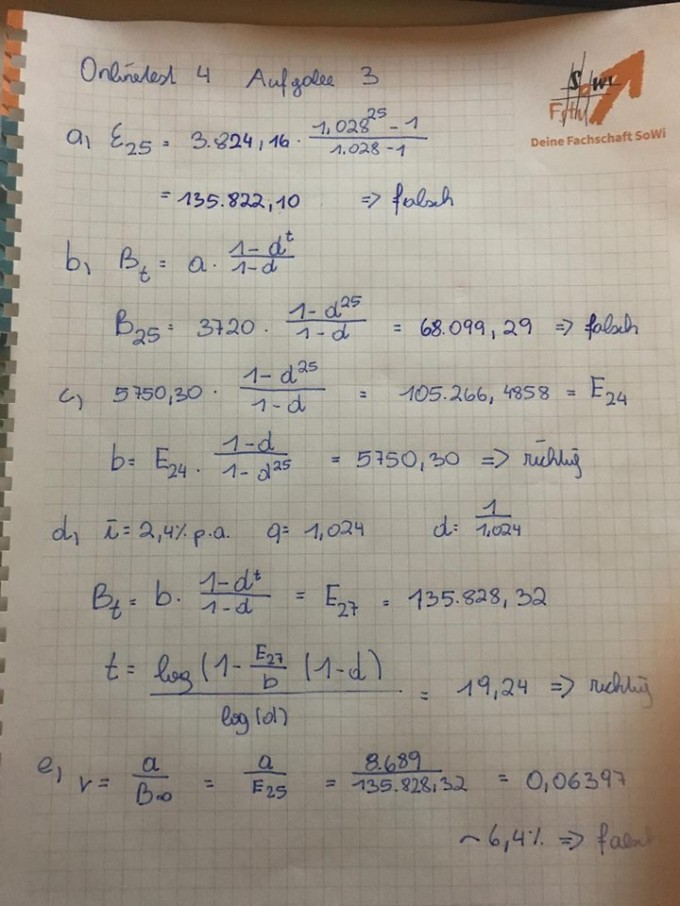 Onlinetest 4 Aufgabe 3
SoWi
Deine Fachschaft SoWi
a) E₂₅ = 3.824,16 · (1,028²⁵ - 1)/(1.028 - 1)
= 135.822,10 => falsch
b) Bₜ = a · (1-dᵗ)/(1-d)
B₂₅ = 3720 · (1-d²⁵)/(1-d) = 68.099,29 => falsch
c) 5750,30 · (1-d²⁵)/(1-d) = 105.266,4858 = E₂₄
b = E₂₄ · (1-d)/(1-d²⁵) = 5750,30 => richtig
d) i = 2,4% p.a. q = 1,024 d = 1/1.024
Bₜ = b · (1-dᵗ)/(1-d) = E₂₇ = 135.828,32
t = log(1 - E₂₇/b (1-d)/log(d) = 19,24 => richtig
e) r = a/B∞ = a/E₂₅ = 8.689/135.828,32 = 0,06397
~ 6,4% => falsch